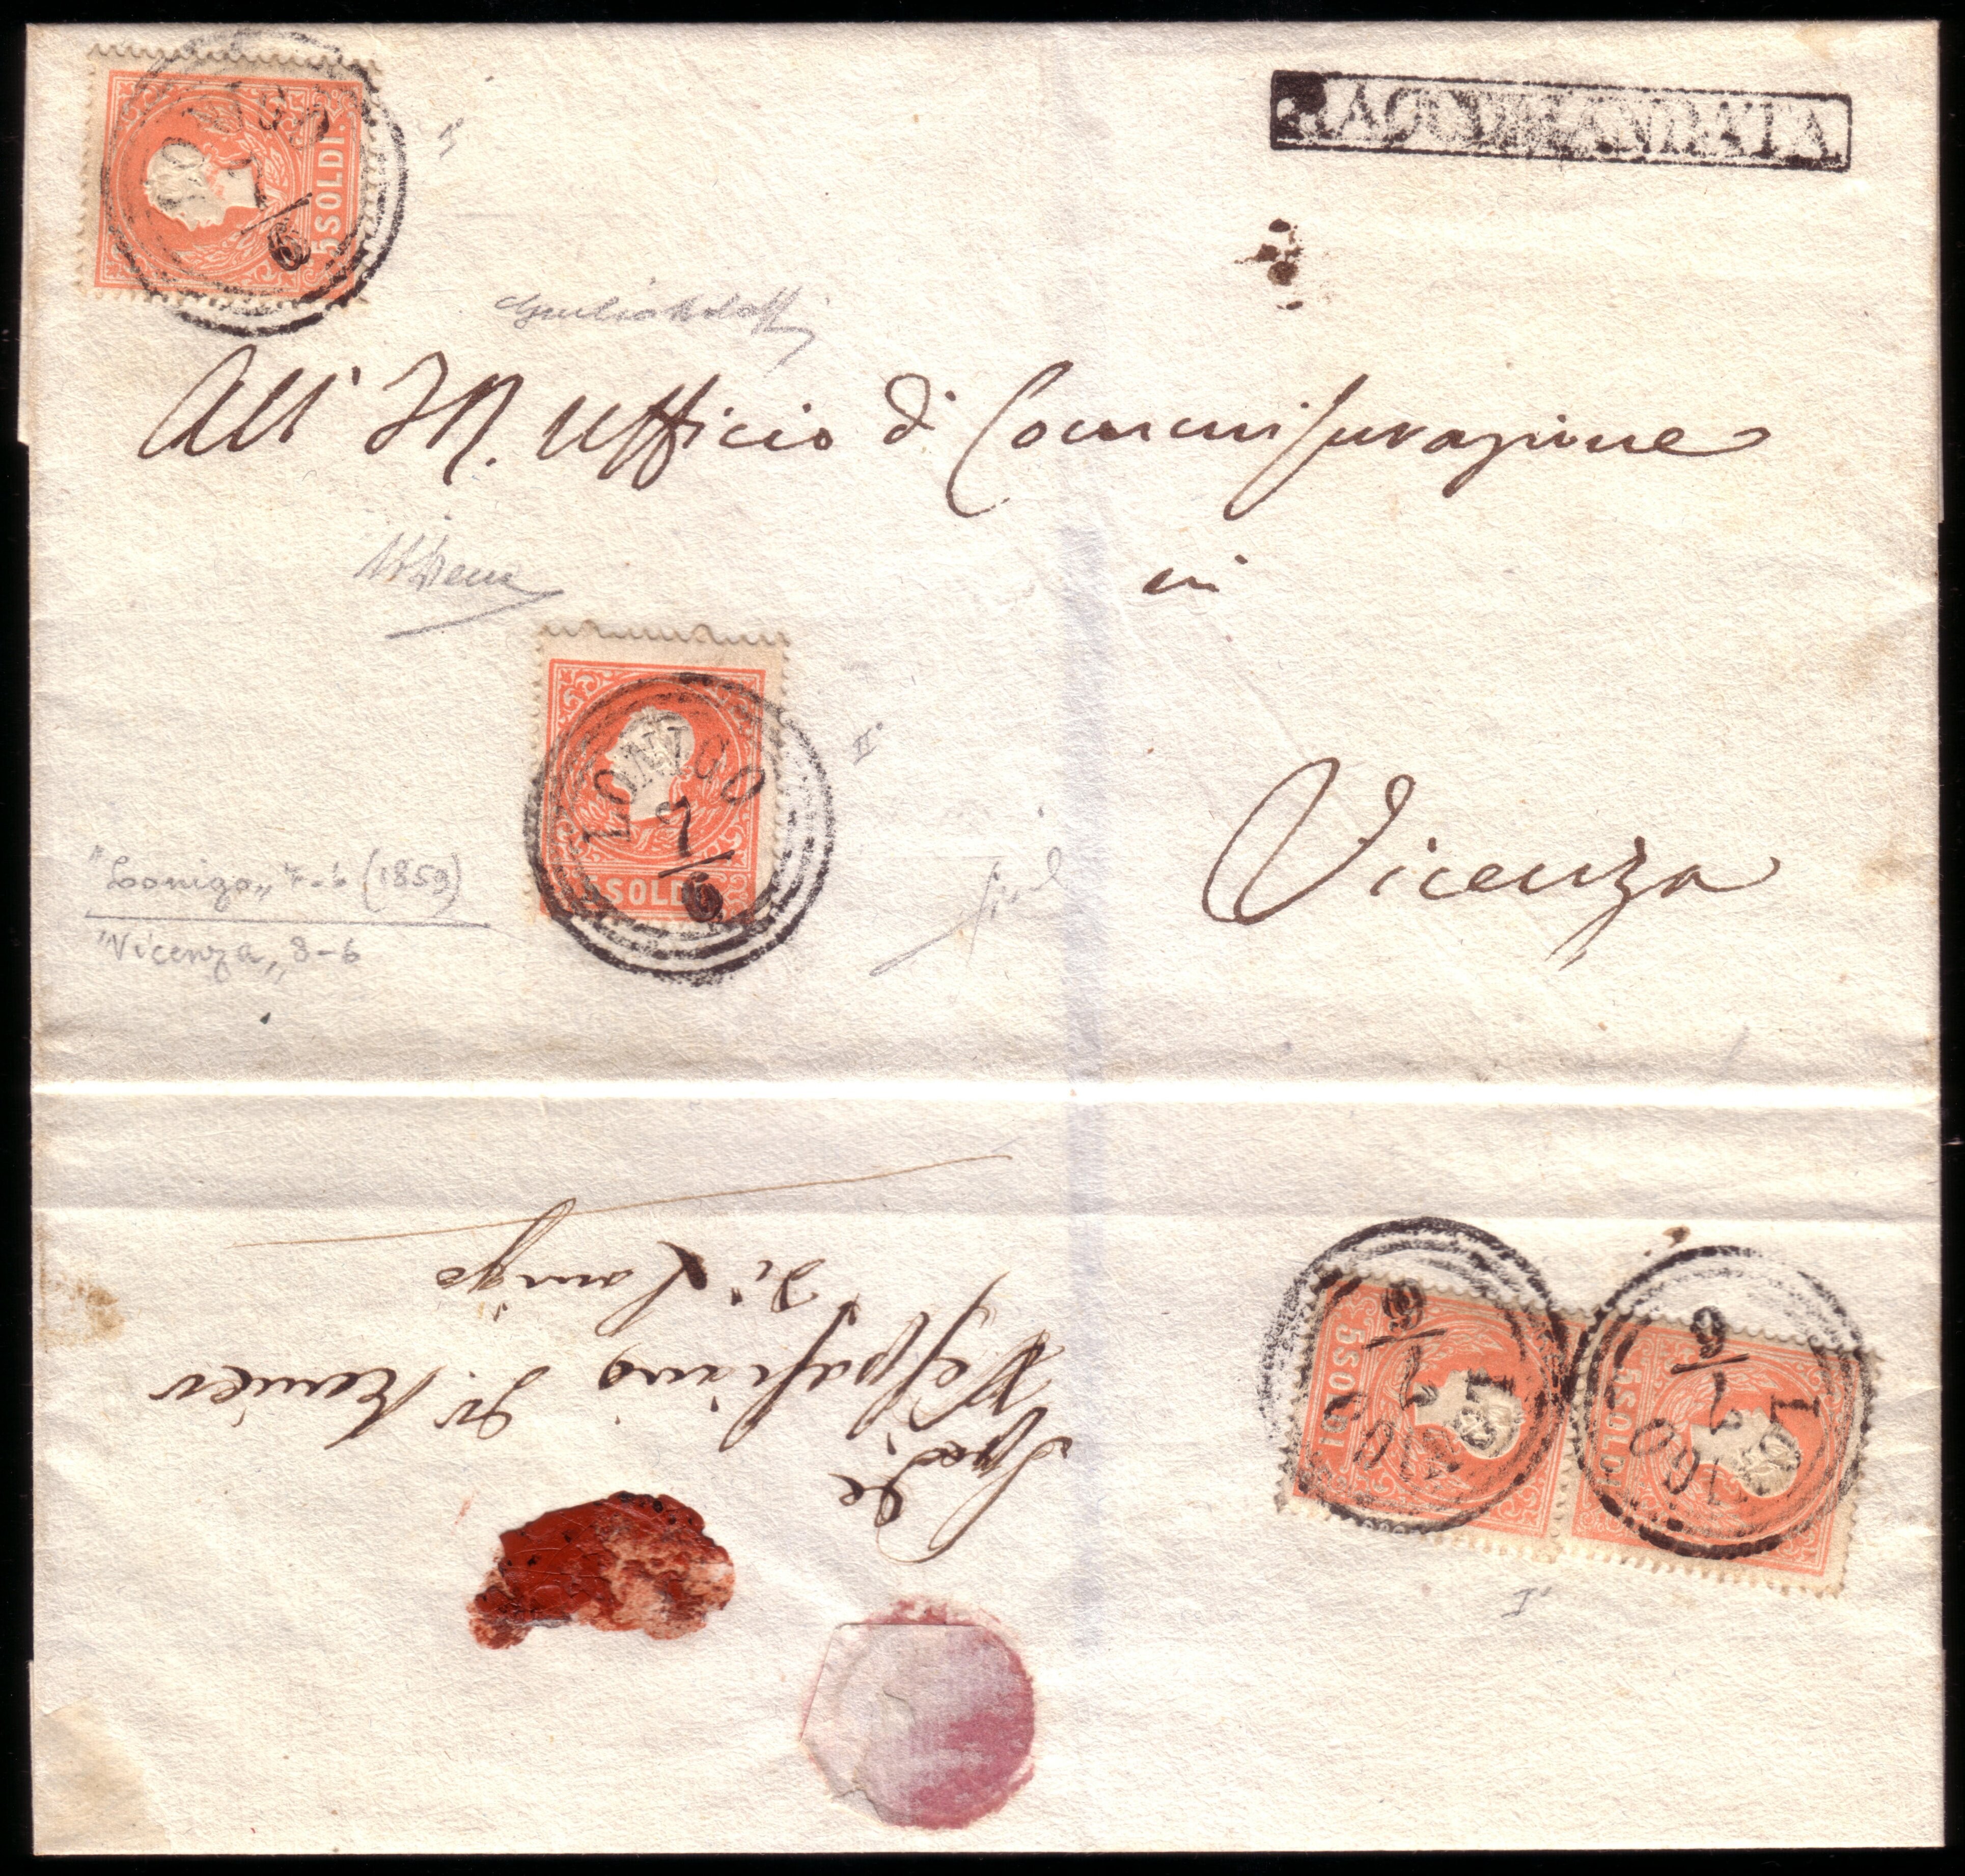 LONIGO
7/6
5 SOLDI
RACCOMANDATA
I°
All' I R. Ufficio di Commisurazione
in
Vicenza
LONIGO
7/6
SOLDI
II°
"Lonigo„ 7-6 (1859)
"Vicenza„ 8-6
LONIGO
7/6
5 SOLDI
LONIGO
7/6
5 SOLDI
I°
De
Spedi
Vespasiano Dr. Renier
di Lonigo